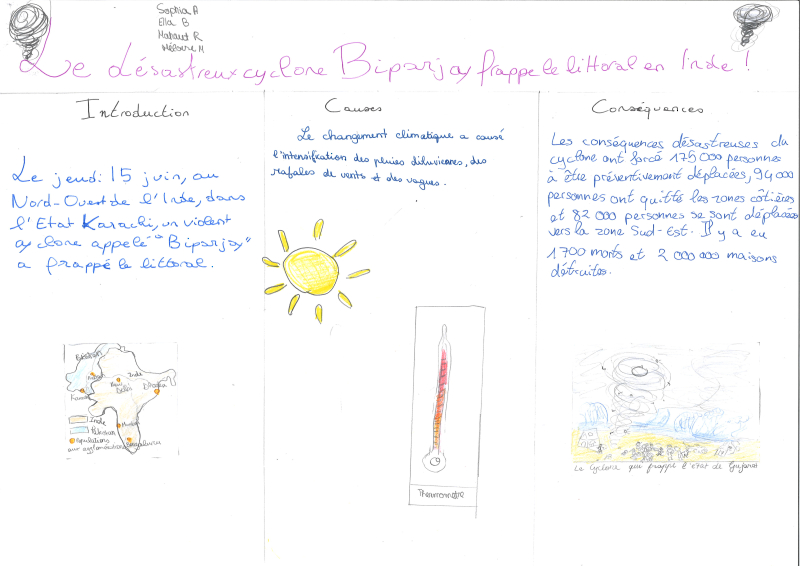 Sophia A
Ella B
Mahaut R
Héloïse M
Le désastreux cyclone Biparjoy frappe le littoral en Inde !
Introduction
Le jeudi 15 juin, au
Nord-Ouest de l'Inde, dans
l'Etat Karachi, un violent
cyclone appelé "Biparjoy"
a frappé le littoral.
Pakistan
Inde
Delhi
Dhaka
Karachi
Mumbai
Bengaluru
Inde
Pakistan
Populations
aux agglomérations
Causes
Le changement climatique a causé
l'intensification des pluies diluviennes, des
rafales de vents et des vagues.
Thermomètre
Conséquences
Les conséquences désastreuses du
cyclone ont forcé 175 000 personnes
à être préventivement déplacées, 94 000
personnes ont quitté les zones côtières
et 82 000 personnes se sont déplacées
vers la zone Sud-Est. Il y a eu
1 700 morts et 2 000 000 maisons
détruites.
Le Cyclone qui frappe l'état de Gujarat